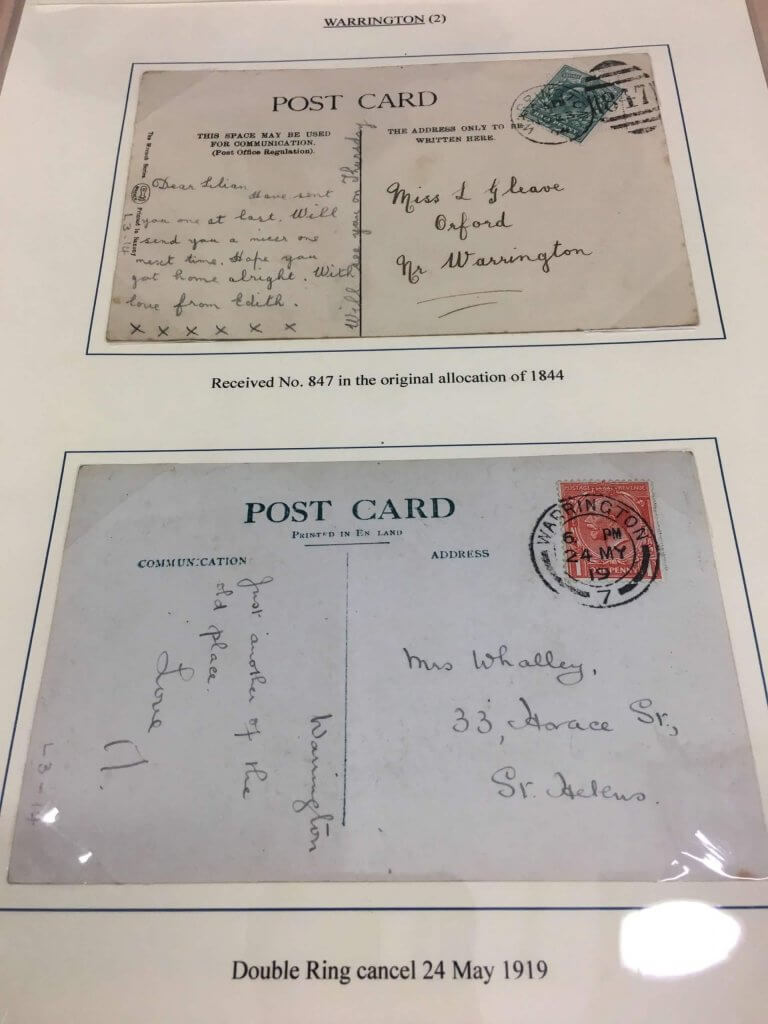 WARRINGTON (2)
POST CARD
THIS SPACE MAY BE USED
FOR COMMUNICATION.
(Post Office Regulation).
THE ADDRESS ONLY TO BE
WRITTEN HERE.
847
Printed in Saxony
L3-14
Dear Lilian
Have sent
you one at last. Will
send you a nicer one
next time. Hope you
got home alright. With
love from Edith.
x x x x x x
Will see you on Thursday
Miss L Gleave
Orford
Nr Warrington
Received No. 847 in the original allocation of 1844
POST CARD
PRINTED IN EN LAND
COMMUNICATION
ADDRESS
POSTAGE REVENUE
WARRINGTON
6 PM
24 MY
19
7
Warrington
Just another of the
old place.
Love
L3-14
Mrs Whalley,
33, Horace St,
St. Helens.
Double Ring cancel 24 May 1919